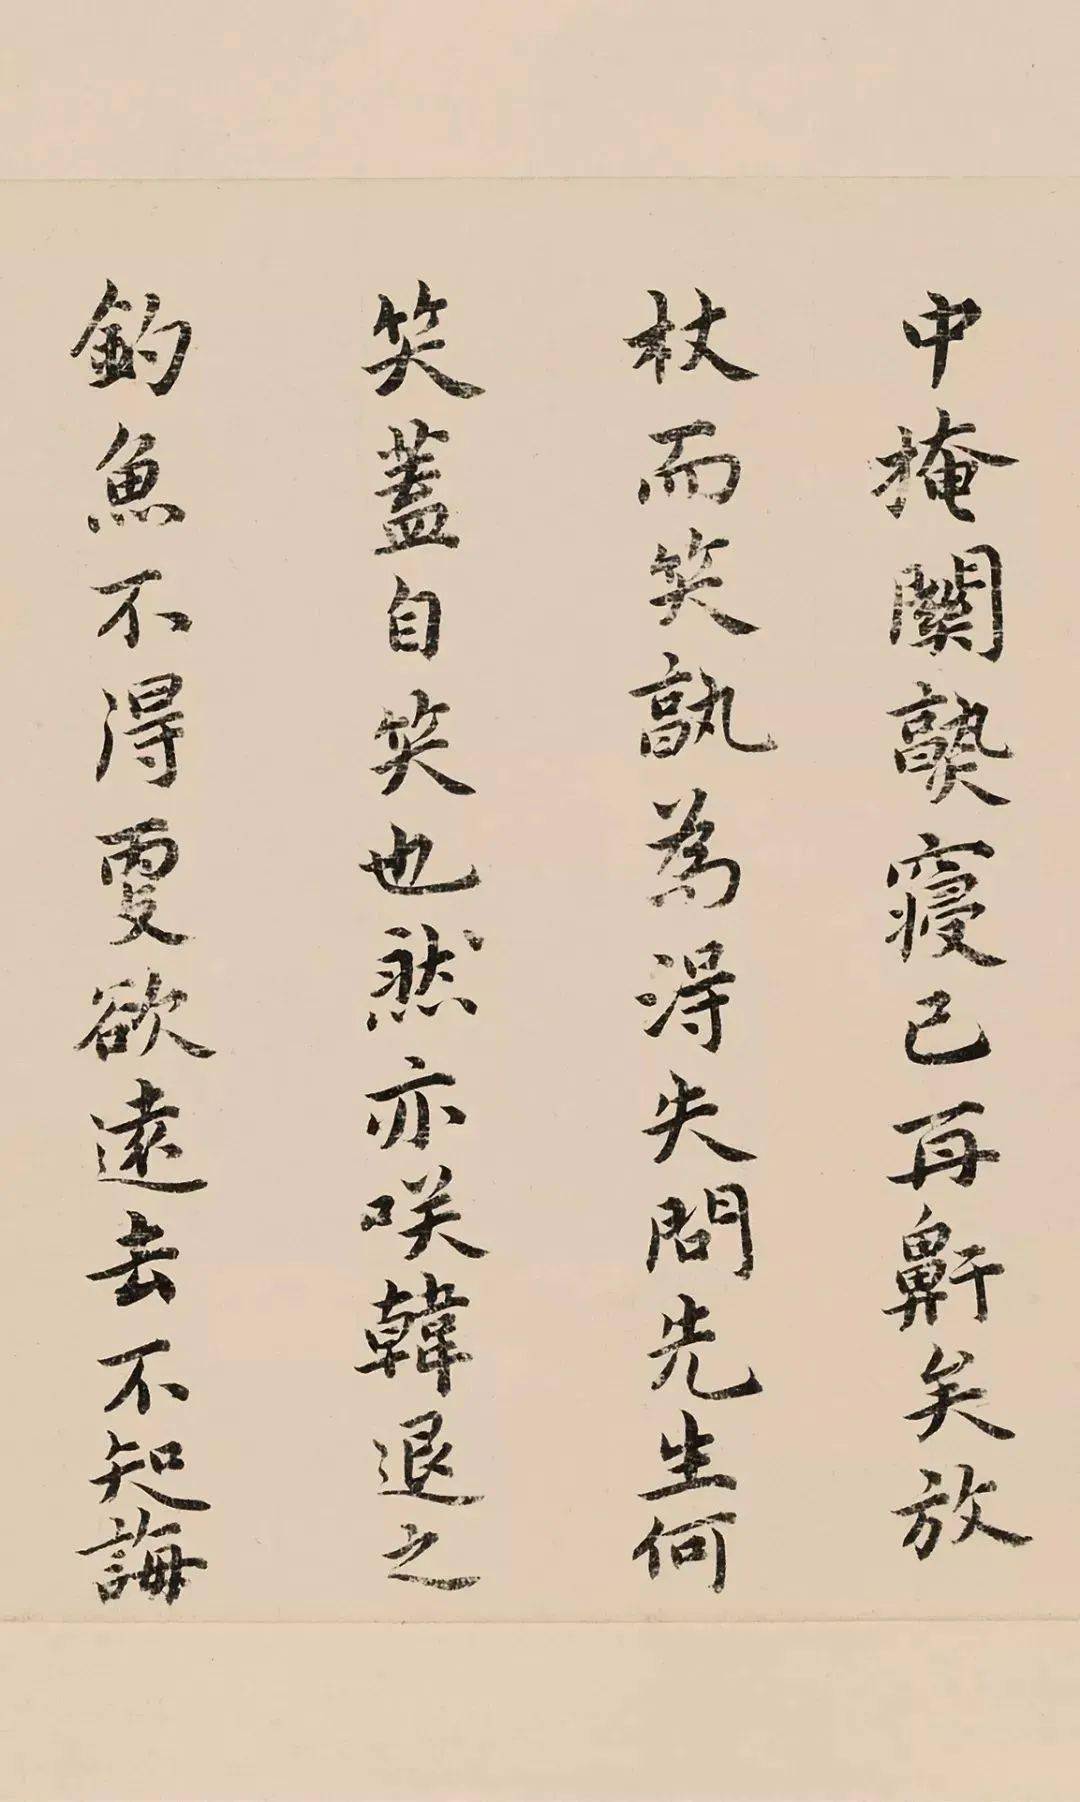 中掩關熟寢已再鼾矣放
杖而笑孰為得失問先生何
笑蓋自笑也然亦咲韓退之
釣魚不得更欲遠去不知誨